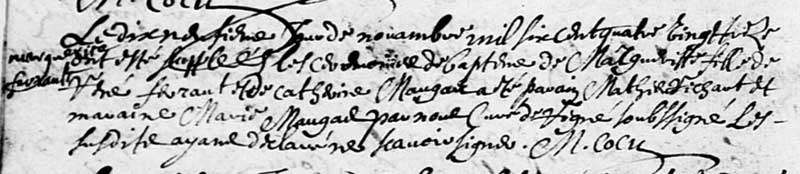 M. Cocu
Le dixneufieme Jour de novambre mil six cent quatre vingt seize
marguerite ont esté supplééś les ceremonies de bapteme de Margueritte fille de
ferrant René ferrant et de Catherine Maugar a eté parain Mathieu Richart et
maraine Marie Maugar par nous Curé de signé soubssigné Les-
susdits ayant declaré ne scavoir signer. M. Cocu